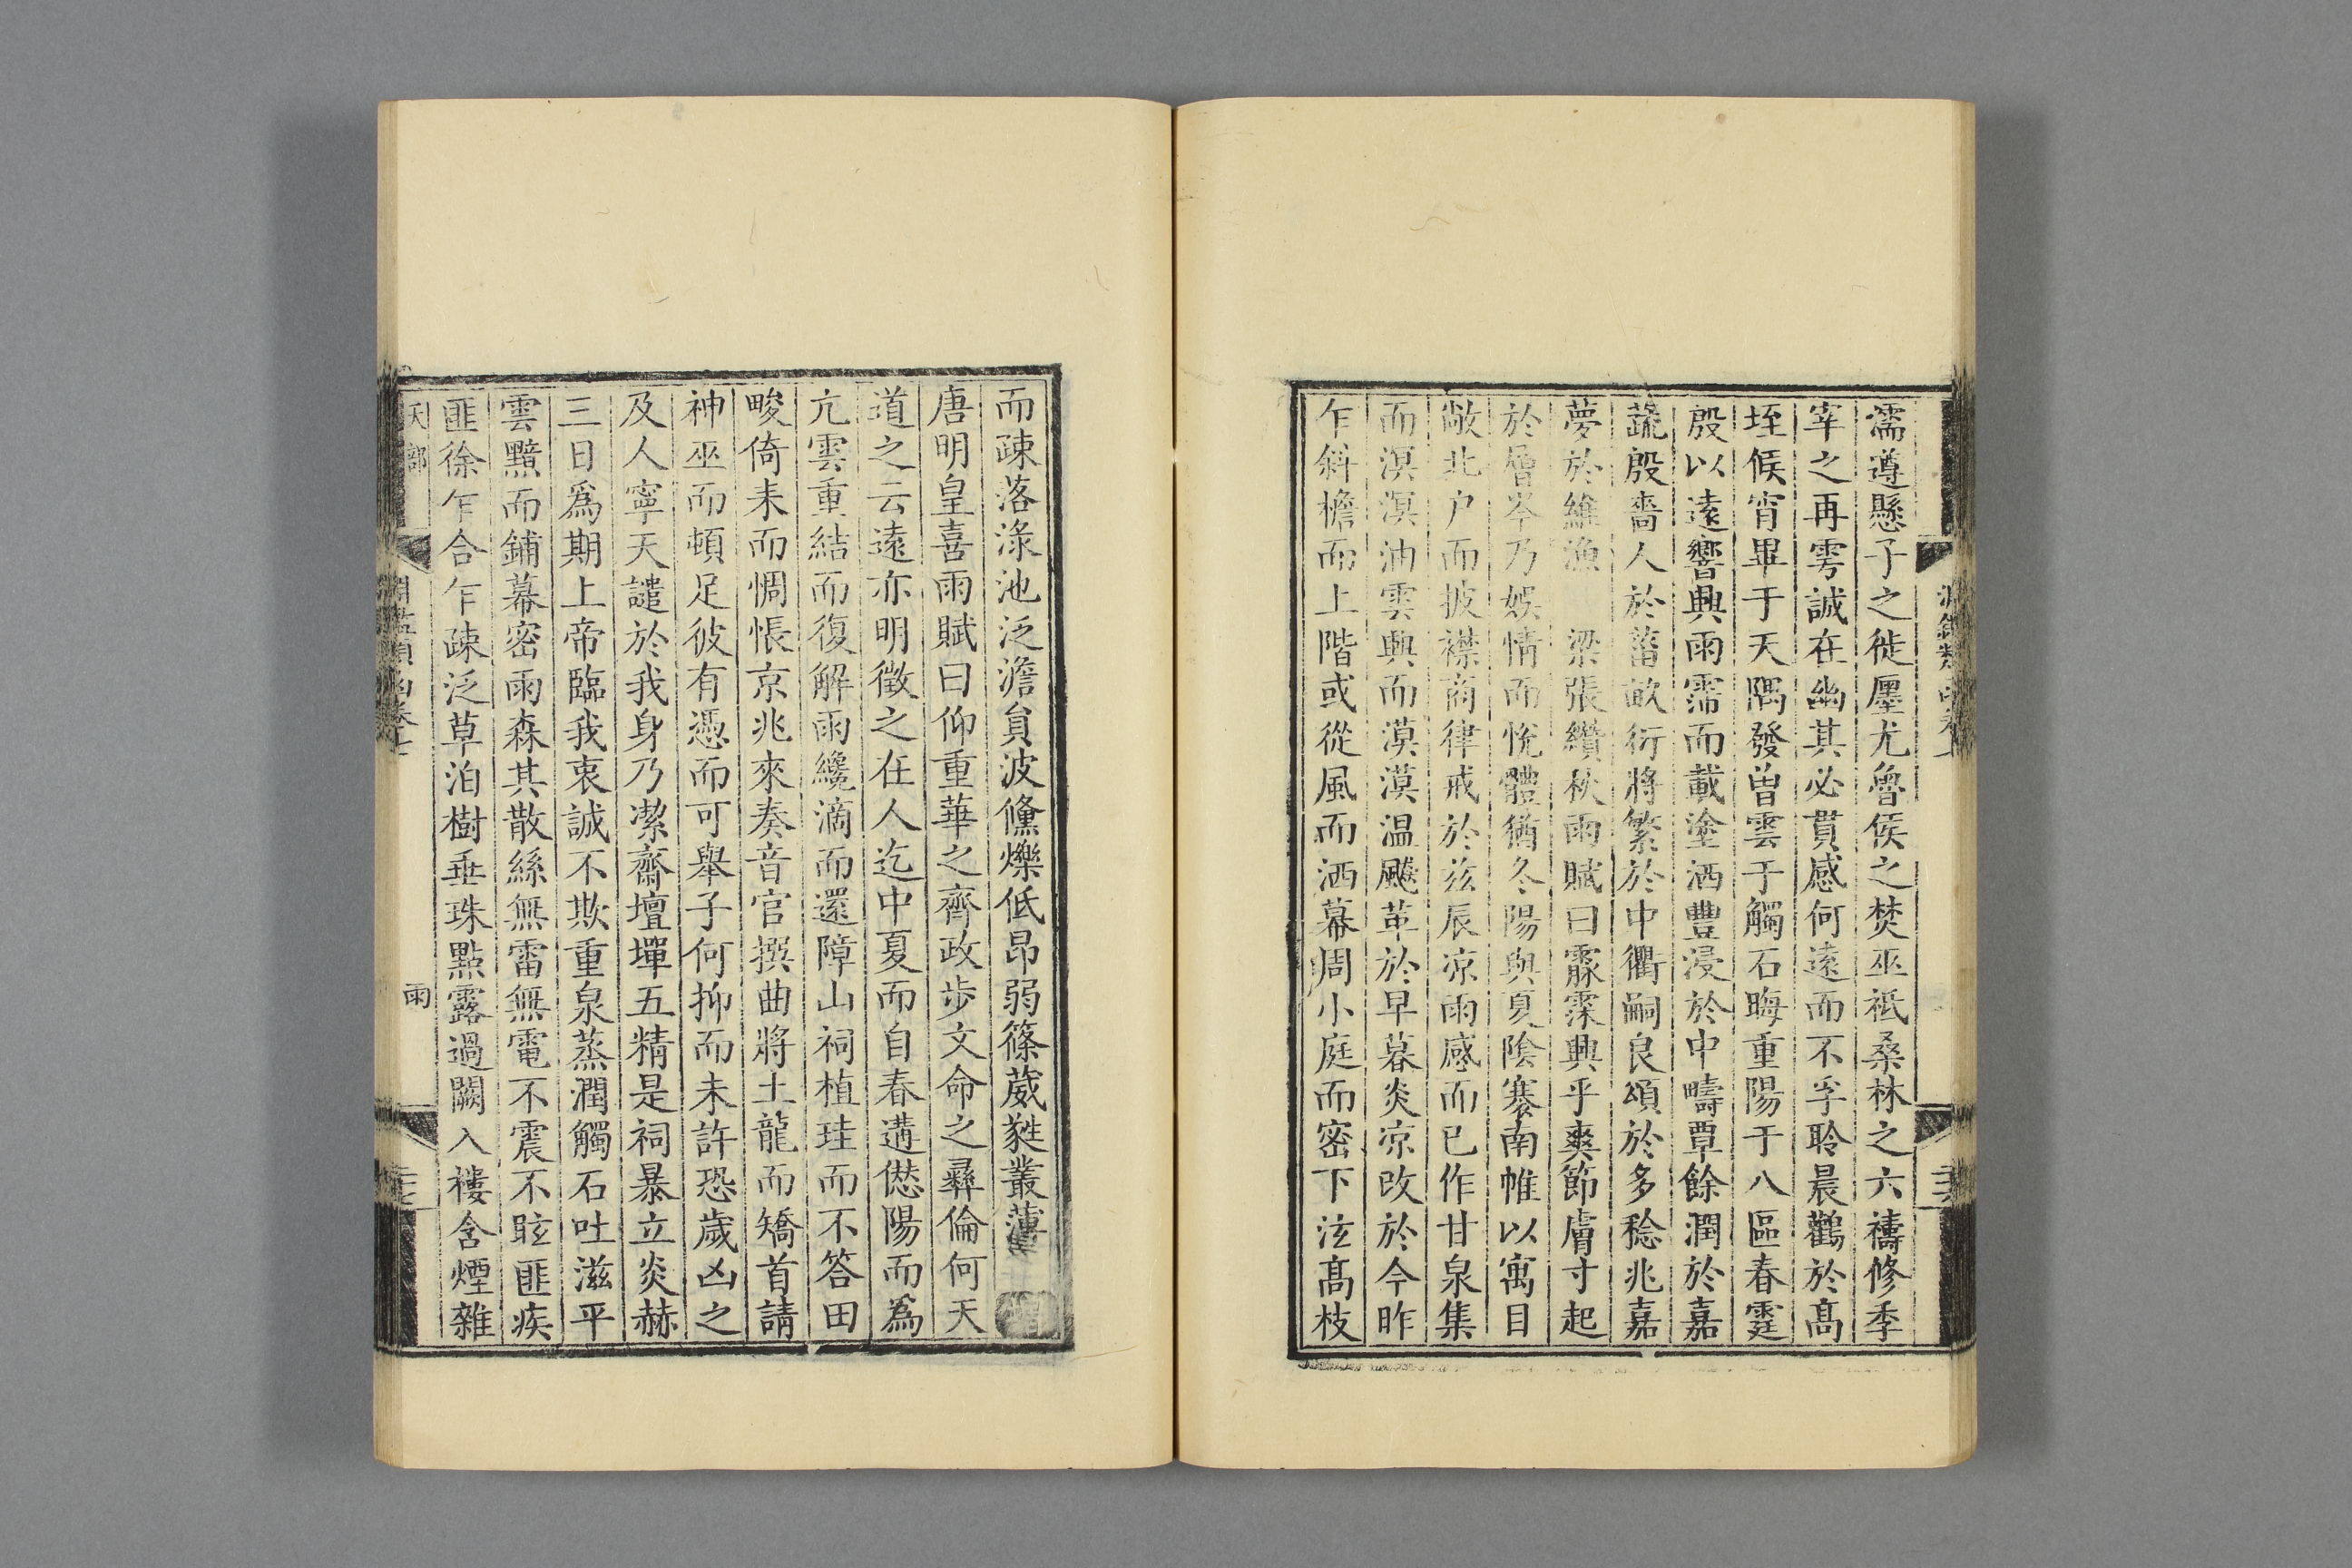 濡遵懸子之徙廛尤魯侯之焚巫祗桑林之六禱修季
宰之再雩誠在幽其必貫感何遠而不孚聆晨鸛於髙
垤候宵畢于天隅發曽雲于觸石晦重陽于八區春霆
殷以遠響興雨霈而載塗洒豐浸於中疇覃餘潤於嘉
蔬殷嗇人於菑畝衍將繁於中衢嗣良頌於多稔兆嘉
夢於維漁 梁張纘秋雨賦曰霡霂興乎爽節膚寸起
於層岑乃娱情而悅體猶冬陽與夏陰褰南帷以寓目
敞北户而披襟商律戒於兹辰凉雨感而已作甘泉集
而溟溟油雲興而漠漠温飈革於早暮炎凉改於今昨
乍斜檐而上階或從風而洒幕周小庭而密下泫髙枝
而疎落渌池泛澹員波儵爍低昂弱篠葳蕤叢薄
唐明皇喜雨賦曰仰重華之齊政步文命之彞倫何天
道之云遠亦明徵之在人迄中夏而自春遘愆陽而為
亢雲重結而復解雨纔滴而還障山祠植珪而不答田
畯倚耒而惆悵京兆來奏音官撰曲將土龍而矯首請
神巫而頓足彼有憑而可舉子何抑而未許恐歲凶之
及人寧天譴於我身乃潔齋壇墠五精是祠暴立炎赫
三日爲期上帝臨我衷誠不欺重泉蒸潤觸石吐滋平
雲黯而鋪幕密雨森其散絲無雷無電不震不眩匪疾
匪徐乍合乍疎泛草泊樹垂珠點露過闕入褸含煙雜
天部
淵鑑類函卷七
雨
二十七